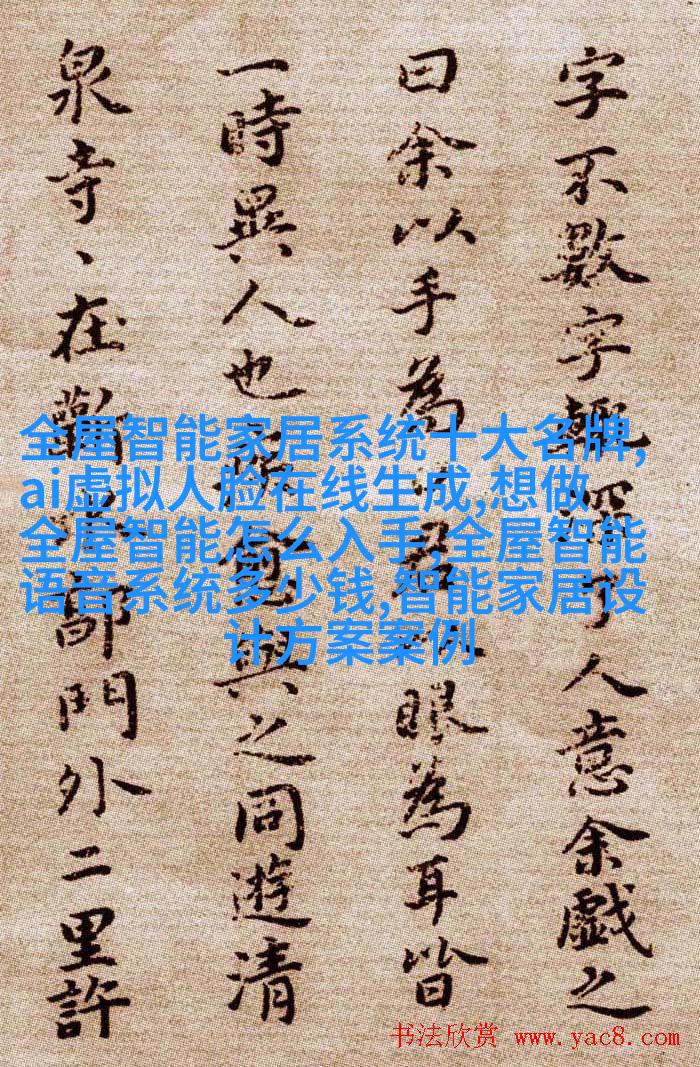 字不數字輒了人意余戲之
曰余以手為君眼為耳皆
一時異人也愈與之同遊清
泉寺、在蘄郭門外二里許
全屋智能家居系统十大名牌,
ai虚拟人脸在线生成,想做
全屋智能怎么入手,全屋智能
语音系统多少钱,智能家居设
计方案案例
书法欣赏 www.yac8.com